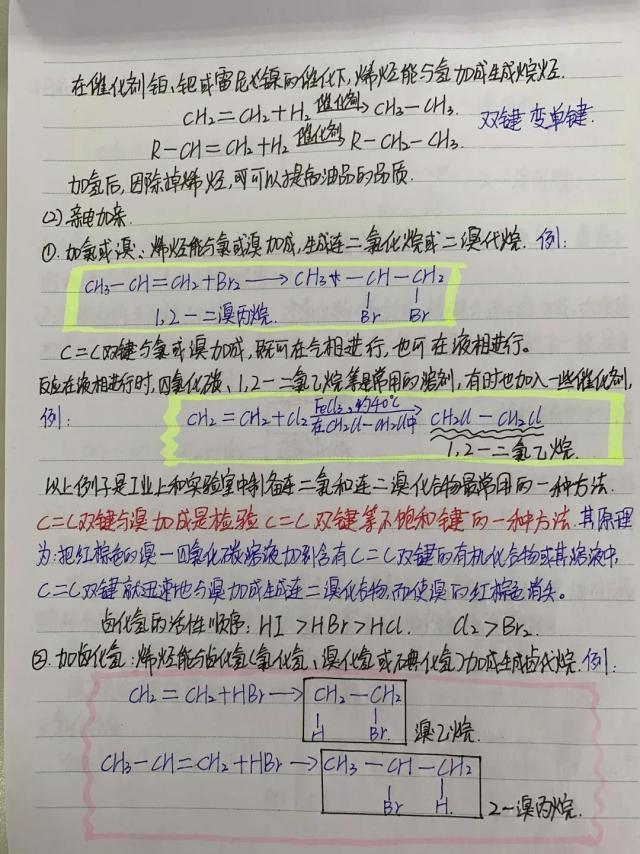 在催化剂铂、钯或雷尼镍的催化下，烯烃能与氢加成生成烷烃.
CH2=CH2+H2 催化剂→ CH3-CH3.
双键变单键.
R-CH=CH2+H2 催化剂→ R-CH2-CH3.
加氢后，因除掉烯烃，可以提高油品的品质.
(2) 亲电加来
①.加氯或溴：烯烃能与氯或溴加成，生成连二氯化烷或二溴代烷. 例：
CH3-CH=CH2+Br2 ⟶ CH3-CH-CH2
1,2-二溴丙烷. Br Br
C=C双键与氯或溴加成，既可在气相进行，也可在液相进行。
反应在液相进行时，四氯化碳、1,2-二氯乙烷等是常用的溶剂，有时也加入一些催化剂，
例：
CH2=CH2+Cl2 FeCl3，约40℃ 在CH2Cl-CH2Cl中→ CH2Cl-CH2Cl
1,2-二氯乙烷.
以上例子是工业上和实验室中制备连二氯和连二溴化合物最常用的一种方法.
C=C双键与溴加成是检验C=C双键等不饱和键的一种方法.其原理
为：把红棕色的溴-四氯化碳溶液加到含有C=C双键的有机化合物或其溶液中，
C=C双键就迅速地与溴加成生成连二溴化合物，而使溴的红棕色消失。
卤化氢的活性顺序：HI>HBr>HCl. Cl2>Br2.
②.加卤化氢：烯烃能与卤化氢(氯化氢、溴化氢或碘化氢)加成生成卤代烷.例：
CH2=CH2+HBr ⟶ CH2-CH2
H Br. 溴乙烷.
CH3-CH=CH2+HBr ⟶ CH3-CH-CH2
Br H. 2-溴丙烷.